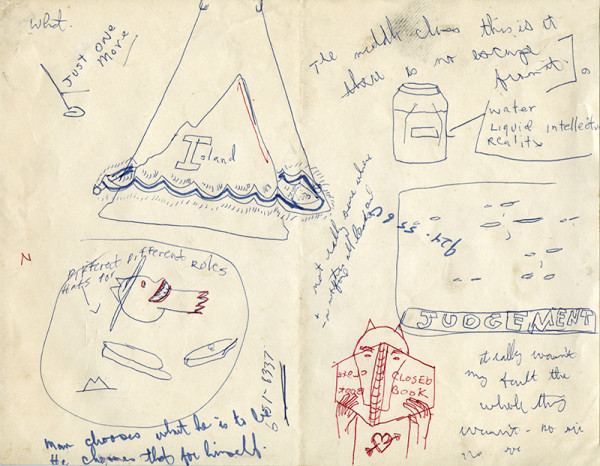 What.
JUST ONE
MORE
Island
The middle class this is it
there is no escape
from it.
water
Liquid intellectu
Reality
924-55
JUDGEMENT
Different Different Roles
Hats for
N
not really sure
CLOSED
BOOK
CLOSED
BOOK
it really wasn't
my fault the
whole thing
wasn't - no
no
681-6337
man chooses what he is to be
He chooses that for himself.